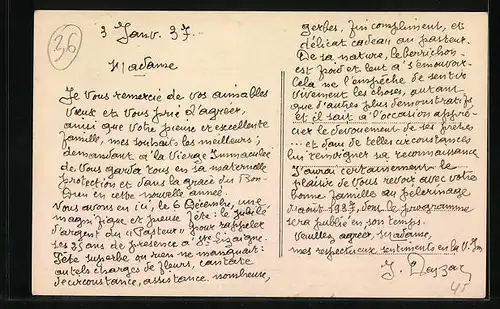 36
3 Janv. 37.
Madame
Je vous remercie de vos aimables
vœux et vous prie d'agréer,
ainsi que votre pieuse et excellente
famille, mes souhaits les meilleurs ;
demandant à la Vierge Immaculée
de vous garder tous en sa maternelle
protection et dans la grâce du Bon
Dieu en cette nouvelle année.
Nous avons eu ici, le 6 Décembre, une
magnifique et pieuse fête : le jubilé
d'argent du "Pasteur" pour rappeler
ses 35 ans de présence à Ste Lizaigne.
Fête superbe où rien ne manquait :
autels chargés de fleurs, cantate
de circonstance, assistance nombreuse,
gerbes, fin compliment, et
délicat cadeau au pasteur.
De sa nature, le berrichon
est froid et lent à s'émouvoir
Cela ne l'empêche de sentir
vivement les choses, autant
que d'autres plus démonstratifs
et il sait à l'occasion appré-
cier le dévouement de ses prêtres
... et dans de telles circonstances
lui témoigner sa reconnaissance
J'aurai certainement le
plaisir de vous revoir avec votre
bonne famille au pèlerinage
d'août 1937, dont le programme
sera publié en son temps.
Veuillez agréer, Madame,
mes respectueux sentiments en la V. Im
J.
45